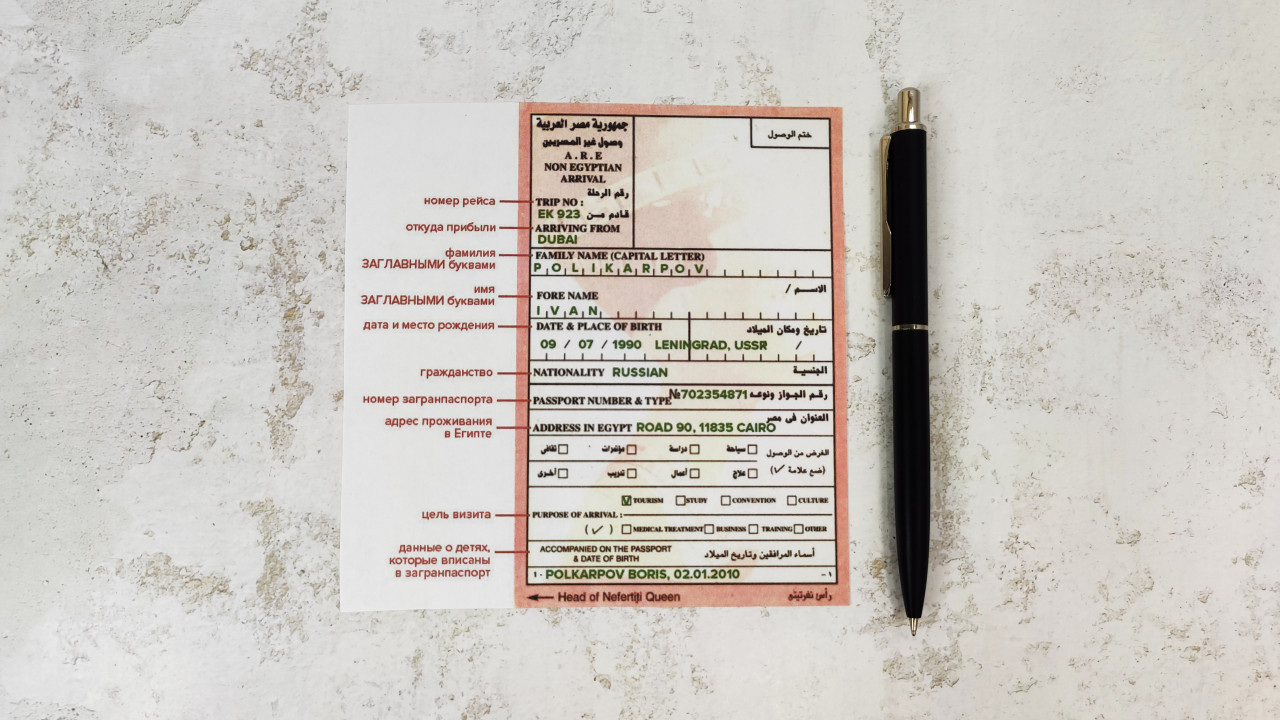 جمهورية مصر العربية
وصول غير المصريين
A . R . E
NON EGYPTIAN
ARRIVAL
ختم الوصول
رقم الرحلة
номер рейса
TRIP NO :
EK 923 قادم مــن
откуда прибыли
ARRIVING FROM
DUBAI
фамилия
ЗАГЛАВНЫМИ буквами
FAMILY NAME (CAPITAL LETTER)
POLIKARPOV
имя
ЗАГЛАВНЫМИ буквами
الاســـم /
FORE NAME
IVAN
дата и место рождения
DATE & PLACE OF BIRTH تاريخ ومكان الميلاد
09 / 07 / 1990 LENINGRAD, USSR /
гражданство
NATIONALITY RUSSIAN الجنسيــة
номер загранпаспорта
PASSPORT NUMBER & TYPE №702354871 رقـم الجـواز ونوعـه
адрес проживания
в Египте
العنوان فى مصر
ADDRESS IN EGYPT ROAD 90, 11835 CAIRO
الغرض من الوصول سياحة دراسة مؤتمرات ثقافى
(ضع علامة ✓) علاج أعمال تدريب أخرى
TOURISM STUDY CONVENTION CULTURE
цель визита
PURPOSE OF ARRIVAL :
( ✓ ) MEDICAL TREATMENT BUSINESS TRAINING OTHER
данные о детях,
которые вписаны
в загранпаспорт
ACCOMPANIED ON THE PASSPORT
& DATE OF BIRTH
أسماء المرافقين وتاريخ الميلاد
1 - POLKARPOV BORIS, 02.01.2010 ١ -
Head of Nefertiti Queen رأس نفرتيتى